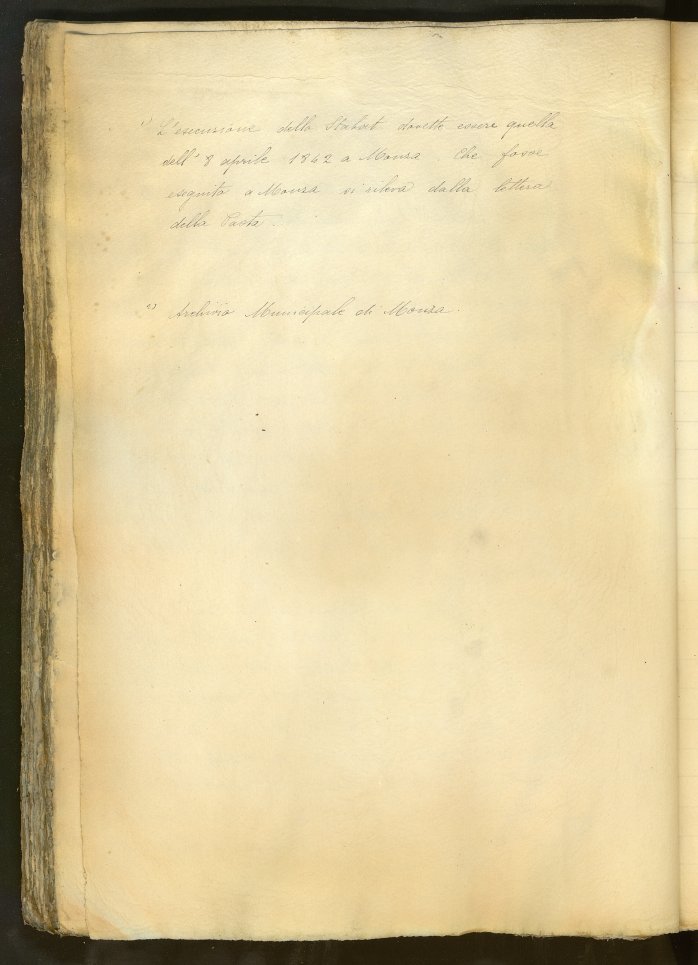 1) L'esecuzione dello Stabat dovette essere quella
dell' 8 aprile 1842 a Monza Che fosse
eseguito a Monza si rileva dalla lettera
della Pasta.
2) Archivio Municipale di Monza.